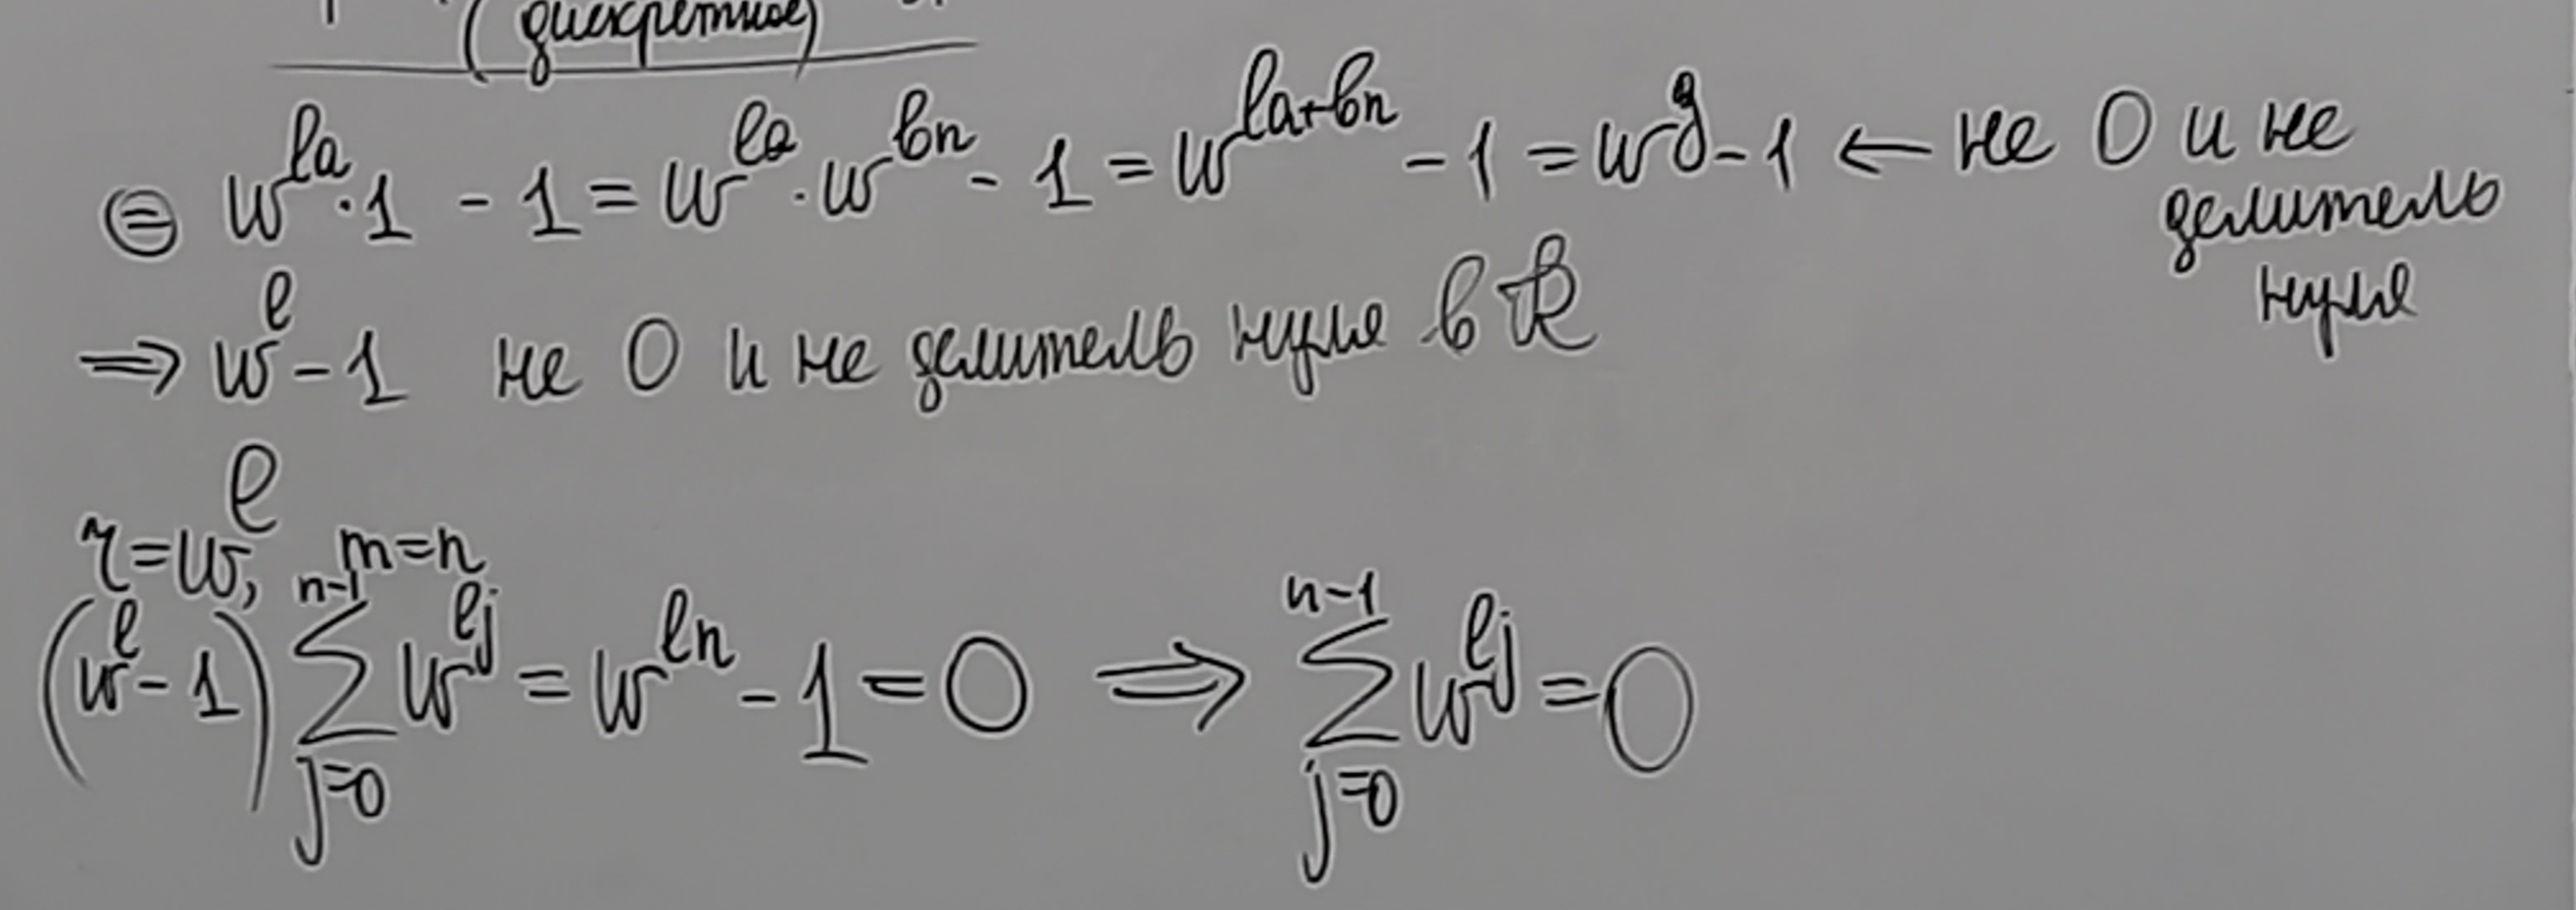 (дискретное)
⊜ w^{la}·1 - 1 = w^{la}·w^{bn} - 1 = w^{la+bn} - 1 = w^g - 1 ← не 0 и не делитель нуля
⇒ w^l - 1 не 0 и не делитель нуля в R
r = w^l, m = n
(w^l - 1) ∑_{j=0}^{n-1} w^{lj} = w^{ln} - 1 = 0 ⇒ ∑_{j=0}^{n-1} w^{lj} = 0